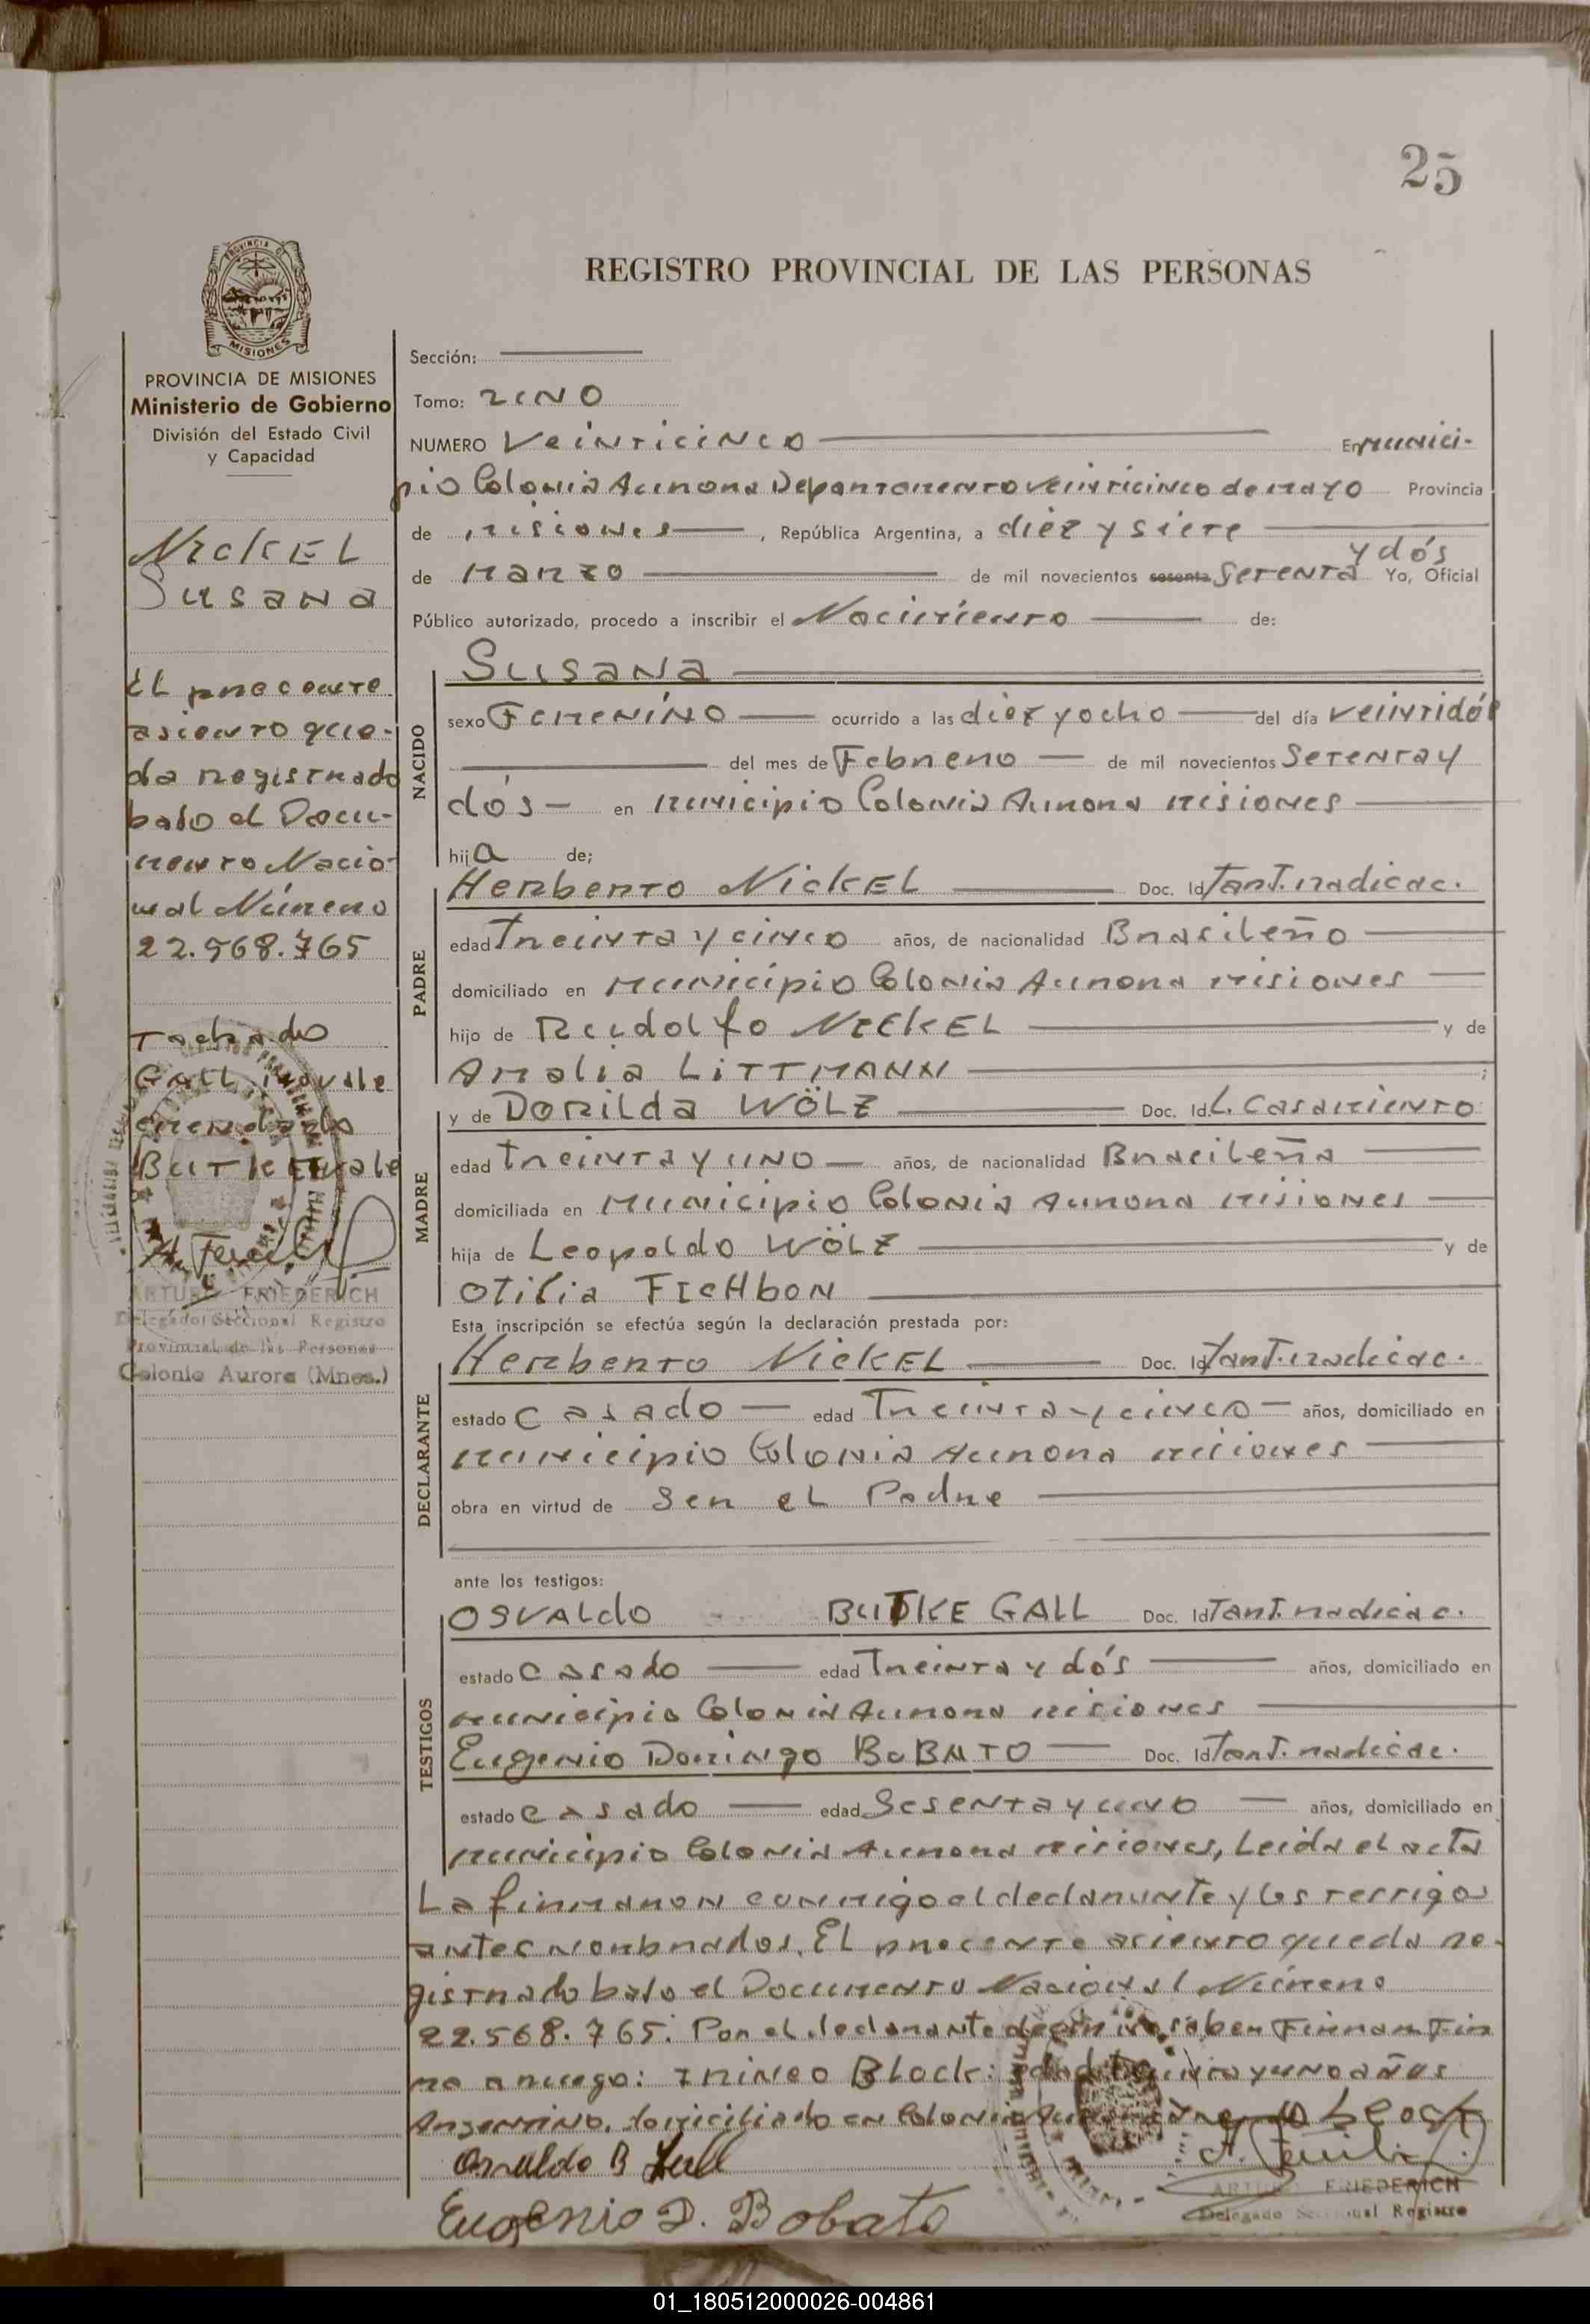 25
PROVINCIA DE
MISIONES
REGISTRO PROVINCIAL DE LAS PERSONAS
PROVINCIA DE MISIONES
Ministerio de Gobierno
División del Estado Civil
y Capacidad
NickEL
Susana
El precente
asiento que-
da registrado
bajo el Docu-
mento Nacio-
nal Número
22.568.765
Tachado
GALL no vale
enmendado
BUTKE vale
ARTURO FRIEDERICH
Delegado Seccional Registro
Provincial de las Personas
Colonia Aurora (Mnes.)
Sección:
Tomo: UNO
NUMERO Veinticinco En munici-
pio Colonia Aurora Departamento veinticinco de mayo Provincia
de misiones, República Argentina, a diez y siete
de Marzo de mil novecientos sesenta Setenta y dós Yo, Oficial
Público autorizado, procedo a inscribir el Nacimiento de:
NACIDO
Susana
sexo Femenino ocurrido a las diez y ocho del día veintidós
del mes de Febrero de mil novecientos Setenta y
dós en municipio Colonia Aurora misiones
hija de;
PADRE
Herberto NickEL Doc. Id Tant. radicac.
edad Treinta y cinco años, de nacionalidad Brasileño
domiciliado en Municipio Colonia Aurora misiones
hijo de Rudolfo NickEL y de
Amalia LITTMANN ;
MADRE
y de Dorilda WÖLZ Doc. Id L. Casamiento
edad treinta y uno años, de nacionalidad Brasileña
domiciliada en Municipio Colonia Aurora misiones
hija de Leopoldo WÖLZ y de
Otilia FICHboN
Esta inscripción se efectúa según la declaración prestada por:
DECLARANTE
Herberto NickEL Doc. Id Tant. radicac.
estado casado edad Treinta y cinco años, domiciliado en
municipio Colonia Aurora misiones
obra en virtud de Ser el Padre
ante los testigos:
TESTIGOS
OSVALdo BUTKE GALL Doc. Id Tant. radicac.
estado casado edad Treinta y dós años, domiciliado en
municipio Colonia Aurora misiones
Eugenio Domingo BOBATO Doc. Id Tant. radicac.
estado casado edad Sesenta y uno años, domiciliado en
municipio Colonia Aurora misiones, Leida el acta
La firmaron conmigo el declarante y los testigos
antes nombrados. El precente asiento queda re-
gistrado bajo el Documento Nacional Número
22.568.765. Por el declarante decir no saber Firmar Fir
ma a ruego: Irineo Block: edad treinta y uno años
Argentino, domiciliado en Colonia Aurora
Osvaldo B Gall
ARTURO FRIEDERICH
Delegado Seccional Registro
Eugenio D. Bobato
01_180512000026-004861